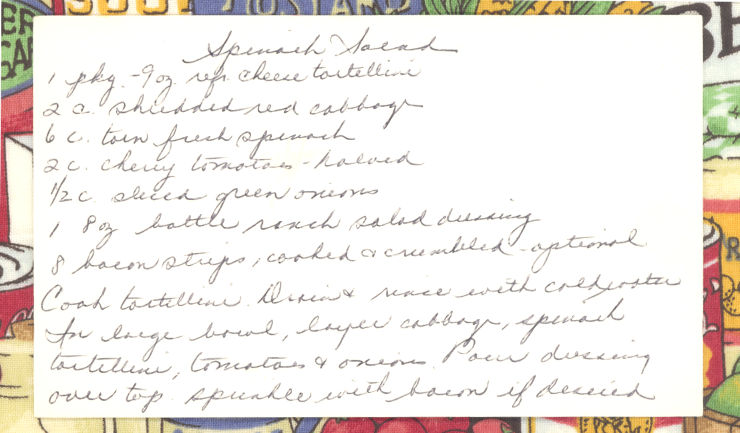 SOUP
MUSTARD
Spinach Salad
1 pkg. - 9 oz refr. cheese tortellini
2 c. shredded red cabbage
6 c. torn fresh spinach
2 c. cherry tomatoes - halved
1/2 c. sliced green onions
1 8 oz bottle ranch salad dressing
8 bacon strips, cooked & crumbled - optional
Cook tortellini. Drain & rinse with cold water
In large bowl, layer cabbage, spinach
tortellini, tomatoes & onions. Pour dressing
over top. sprinkle with bacon if desired